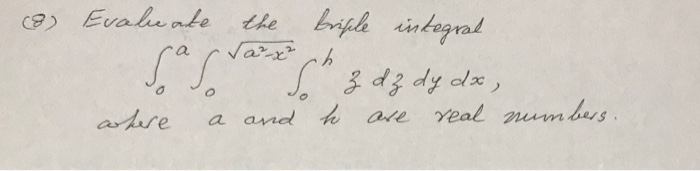 (8) Evaluate the triple integral
∫₀ᵃ ∫₀^√(a²-x²) ∫₀ʰ z dz dy dx,
where a and h are real numbers.